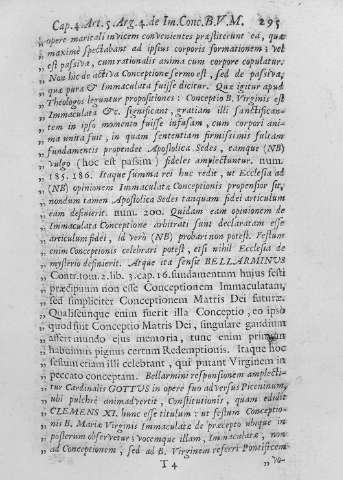 Cap. 4. Art. 5. Arg. 4. de Im. Conc. B. V. M. 295
„ opere maritali invicem convenientes præstiterint ea, quæ
„ maximè spectabant ad ipsius corporis formationem; vel
„ est passiva, cum rationalis anima cum corpore copulatur.
„ Non hîc de activa Conceptione sermo est, sed de passiva,
„ qua pura & Immaculata fuisse dicitur. Quæ igitur apud
„ Theologos leguntur propositiones: Conceptio B. Virginis est
„ Immaculata &c. significant, gratiam illi sanctifican-
„ tem in ipso momento fuisse infusam, cum corpori ani-
„ ma unita fuit, in quam sententiam firmissimis sultam
„ fundamentis propendet Apostolica Sedes, eamque (NB)
„ vulgo (hoc est passim) fideles amplectuntur. num.
„ 185. 186. Itaque summa rei huc redit, ut Ecclesia ad
„ (NB) opinionem Immaculatæ Conceptionis propensior sit,
„ nondum tamen Apostolica Sedes tanquam fidei articulum
„ eam definierit. num. 200. Quidam eam opinionem de
„ Immaculata Conceptione arbitrati sunt declaratam esse
„ articulum fidei, id verò (NB) probari non potest. Festum
„ enim Conceptionis celebrari potest, etsi nihil Ecclesia de
„ mysterio definierit. Atque ita sensit BELLARMINUS
„ Contr. tom. 2. lib. 3. cap. 16. fundamentum hujus festi
„ præcipuum non esse Conceptionem Immaculatam,
„ sed simpliciter Conceptionem Matris Dei futuræ.
„ Qualiscunque enim fuerit illa Conceptio, eo ipso
„ quod fuit Conceptio Matris Dei, singulare gaudium
„ affert mundo ejus memoria, tunc enim primùm
„ habuimus pignus certum Redemptionis. Itaque hoc
„ festum etiam illi celebrant, qui putant Virginem in
„ peccato conceptam. Bellarmini responsionem amplecti-
„ tur Cardinalis GOTTUS in opere suo adversus Piceninum,
„ ubi pulchrè animadvertit, Constitutionis, quam edidit
„ CLEMENS XI. hunc esse titulum: ut festum Conceptio-
„ nis B. Mariæ Virginis Immaculatæ de præcepto ubique in
„ posterum observetur: vocemque illam, Immaculatæ, non
„ ad Conceptionem, sed ad B. Virginem referri Pontificem
T 4 „ vo-